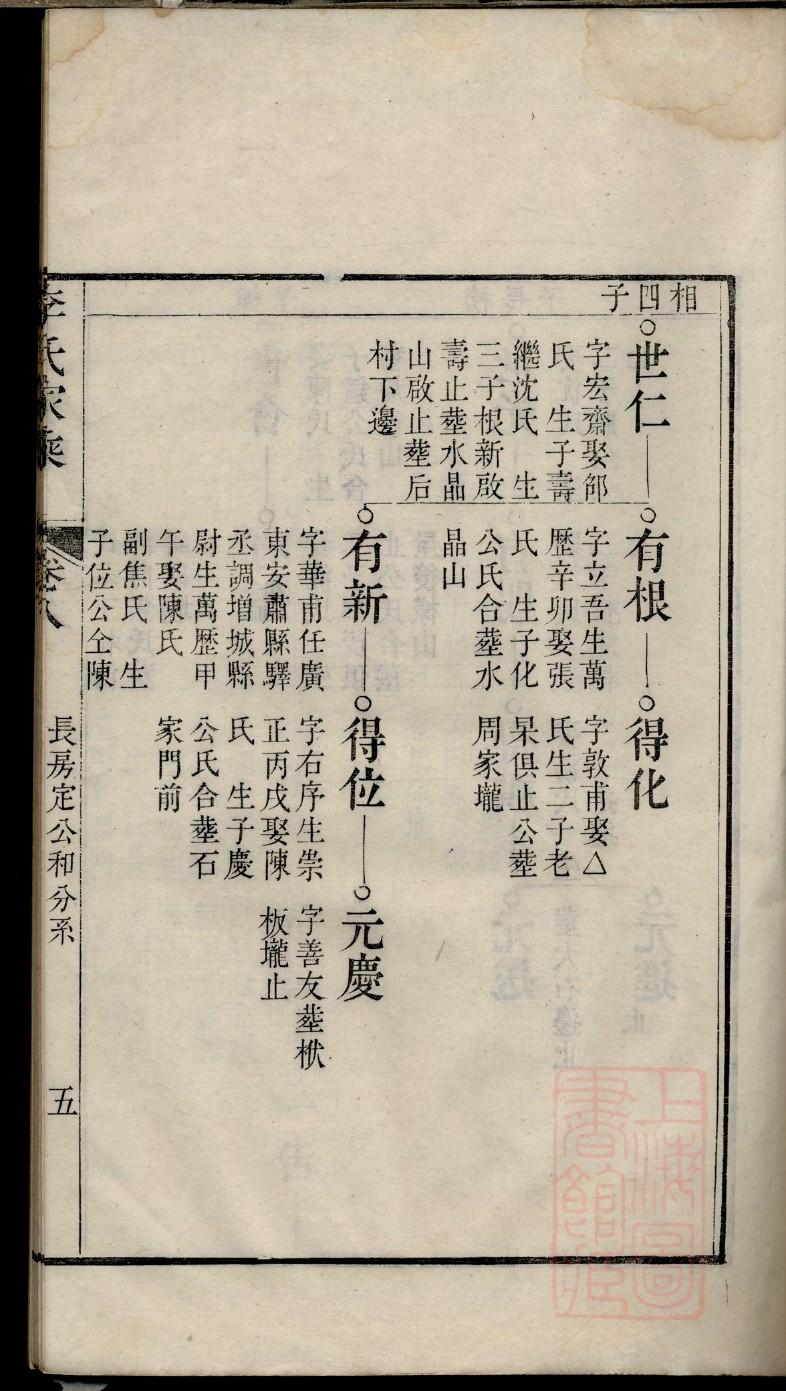 相四子
世仁
字宏齋娶郋
氏　生子壽
繼沈氏　生
三子根新啟
壽止塟水晶
山啟止塟后
村下邊
有根
字立吾生萬
歷辛卯娶張
氏　生子化
公氏合塟水
晶山
得化
字敦甫娶△
氏生二子老
杲俱止公塟
周家壠
有新
字華甫任廣
東安肅縣驛
丞調增城縣
尉生萬歷甲
午娶陳氏
副焦氏　生
子位公仝陳
得位
字右序生崇
正丙戌娶陳
氏　生子慶
公氏合塟石
家門前
元慶
字善友塟栿
板壠止
李氏家乘
卷八
長房定公和分系
五
上海圖書館藏